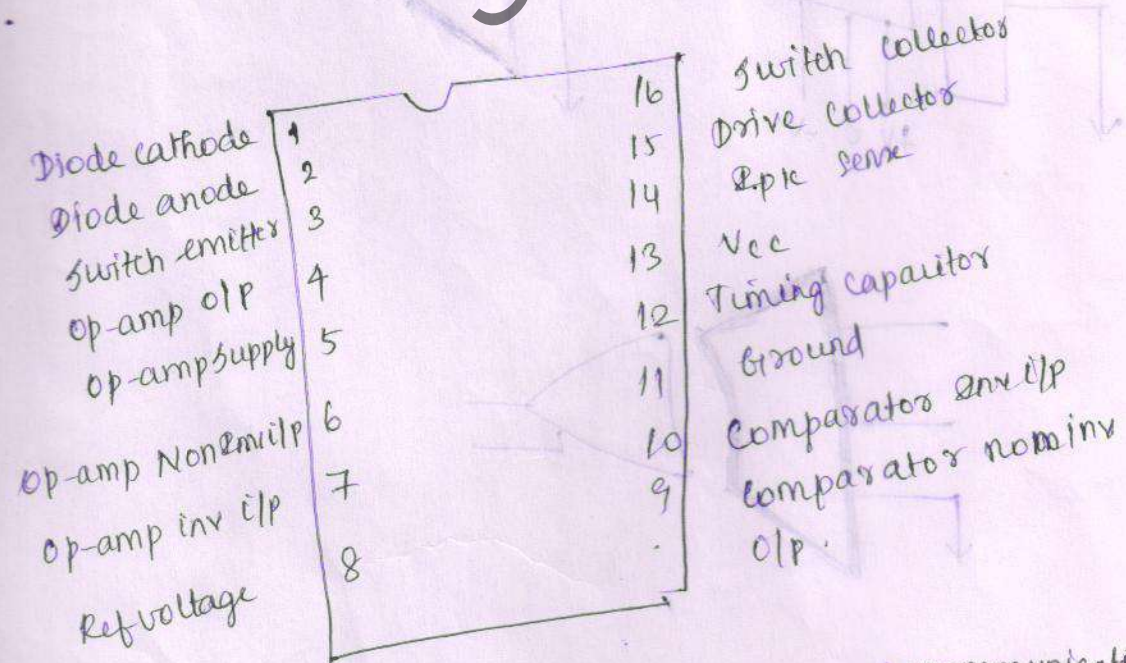 Diode cathode 1
Diode anode 2
Switch emitter 3
Op-amp O/P 4
Op-amp Supply 5
Op-amp Non inv i/p 6
Op-amp inv i/p 7
Ref voltage 8
16 Switch Collector
15 Drive Collector
14 Ipk sense
13 Vcc
12 Timing Capacitor
11 Ground
10 Comparator Inv i/p
9 Comparator non inv
O/P.